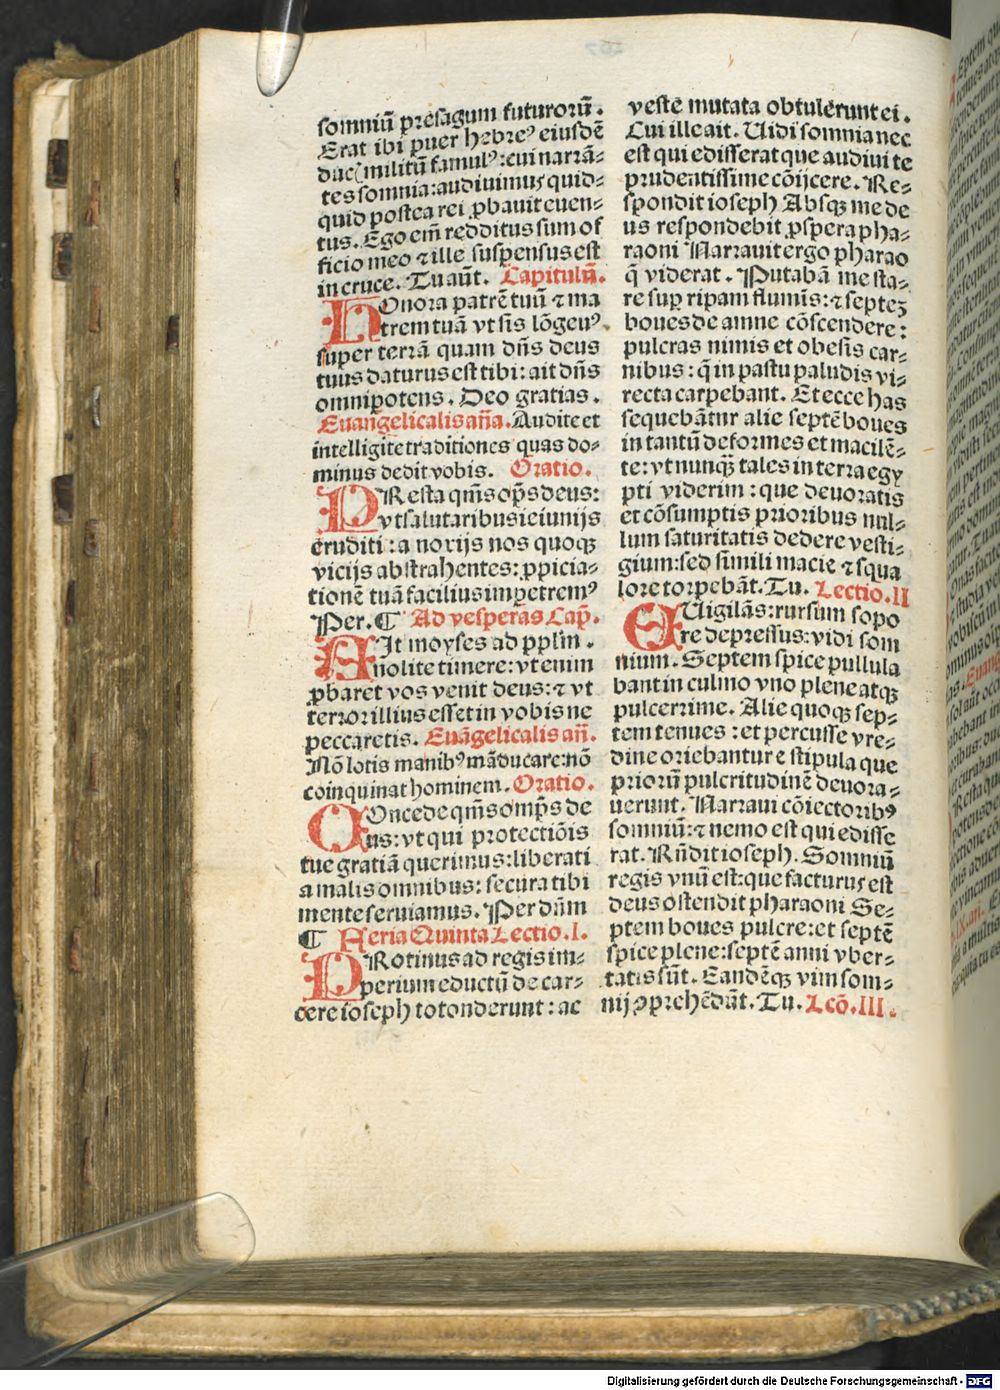 somniū presagum futurorū.
Erat ibi puer hebreꝰ eiusdē
duc militū famulꝰ: cui narrā-
tes somnia: audiuimus quid-
quid postea rei ꝓbauit euen-
tus. Ego em̄ redditus sum of
ficio meo ⁊ ille suspensus est
in cruce. Tu aūt. Capitulū.
HOnora patrē tuū ⁊ ma
trem tuā vt sis lōgeuꝰ
super terrā quam dn̄s deus
tuus daturus est tibi: ait dn̄s
omnipotens. Deo gratias.
Euangelicalis an̄a. Audite et
intelligite traditiones quas do-
minus dedit vobis. Oratio.
PResta qm̄s op̄s deus:
vt salutaribus ieiunijs
eruditi: a noxijs nos quoqꝫ
vicijs abstrahentes: ꝓpicia-
tionē tuā facilius impetremꝰ
Per. ¶ Ad vesperas Cap̄.
AIt moyses ad pplm̄.
nolite timere: vt enim
ꝓbaret vos venit deus: ⁊ vt
terror illius esset in vobis ne
peccaretis. Euāgelicalis an̄.
Nō lotis manibꝰ māducare: nō
coinquinat hominem. Oratio.
COncede qm̄s omp̄s de
us: vt qui protectiōis
tue gratiā querimus: liberati
a malis omnibus: secura tibi
mente seruiamus. Per dūm
¶ Feria Quinta Lectio. I.
PRotinus ad regis im-
perium eductū de car-
cere ioseph totonderunt: ac
veste mutata obtulerunt ei.
Cui ille ait. Uidi somnia nec
est qui edisserat que audiui te
prudentissime cōijcere. Re-
spondit ioseph Absqꝫ me de
us respondebit ꝓspera pha-
raoni Narrauit ergo pharao
q̄ viderat. Putabā me sta-
re sup ripam fluminis: ⁊ septeꝫ
boues de amne cōscendere:
pulcras nimis et obesis car-
nibus: q̄ in pastu paludis vi-
recta carpebant. Et ecce has
sequebātur alie septē boues
in tantū deformes et macilē-
te: vt nunqꝫ tales in terra egy
pti viderim: que deuoratis
et cōsumptis prioribus nul-
lum saturitatis dedere vesti-
gium: sed simili macie ⁊ squa
lore torpebāt. Tu. Lectio. II
EUigilās: rursum sopo
re depressus: vidi som
nium. Septem spice pullula
bant in culmo vno plene atqꝫ
pulcerrime. Alie quoqꝫ sep-
tem tenues: et percusse vre-
dine oriebantur e stipula que
priorū pulcritudinē deuora-
uerunt. Narraui cōiectoribꝰ
somniū: ⁊ nemo est qui edisse
rat. Rn̄dit ioseph. Somniū
regis vnū est: que facturus est
deus ostendit pharaoni Se-
ptem boues pulcre: et septē
spice plene: septē anni vber-
tatis sūt. Eandēqꝫ vim som-
nij ꝯprehēdāt. Tu. Lcō. III.
Digitalisierung gefördert durch die Deutsche Forschungsgemeinschaft - DFG